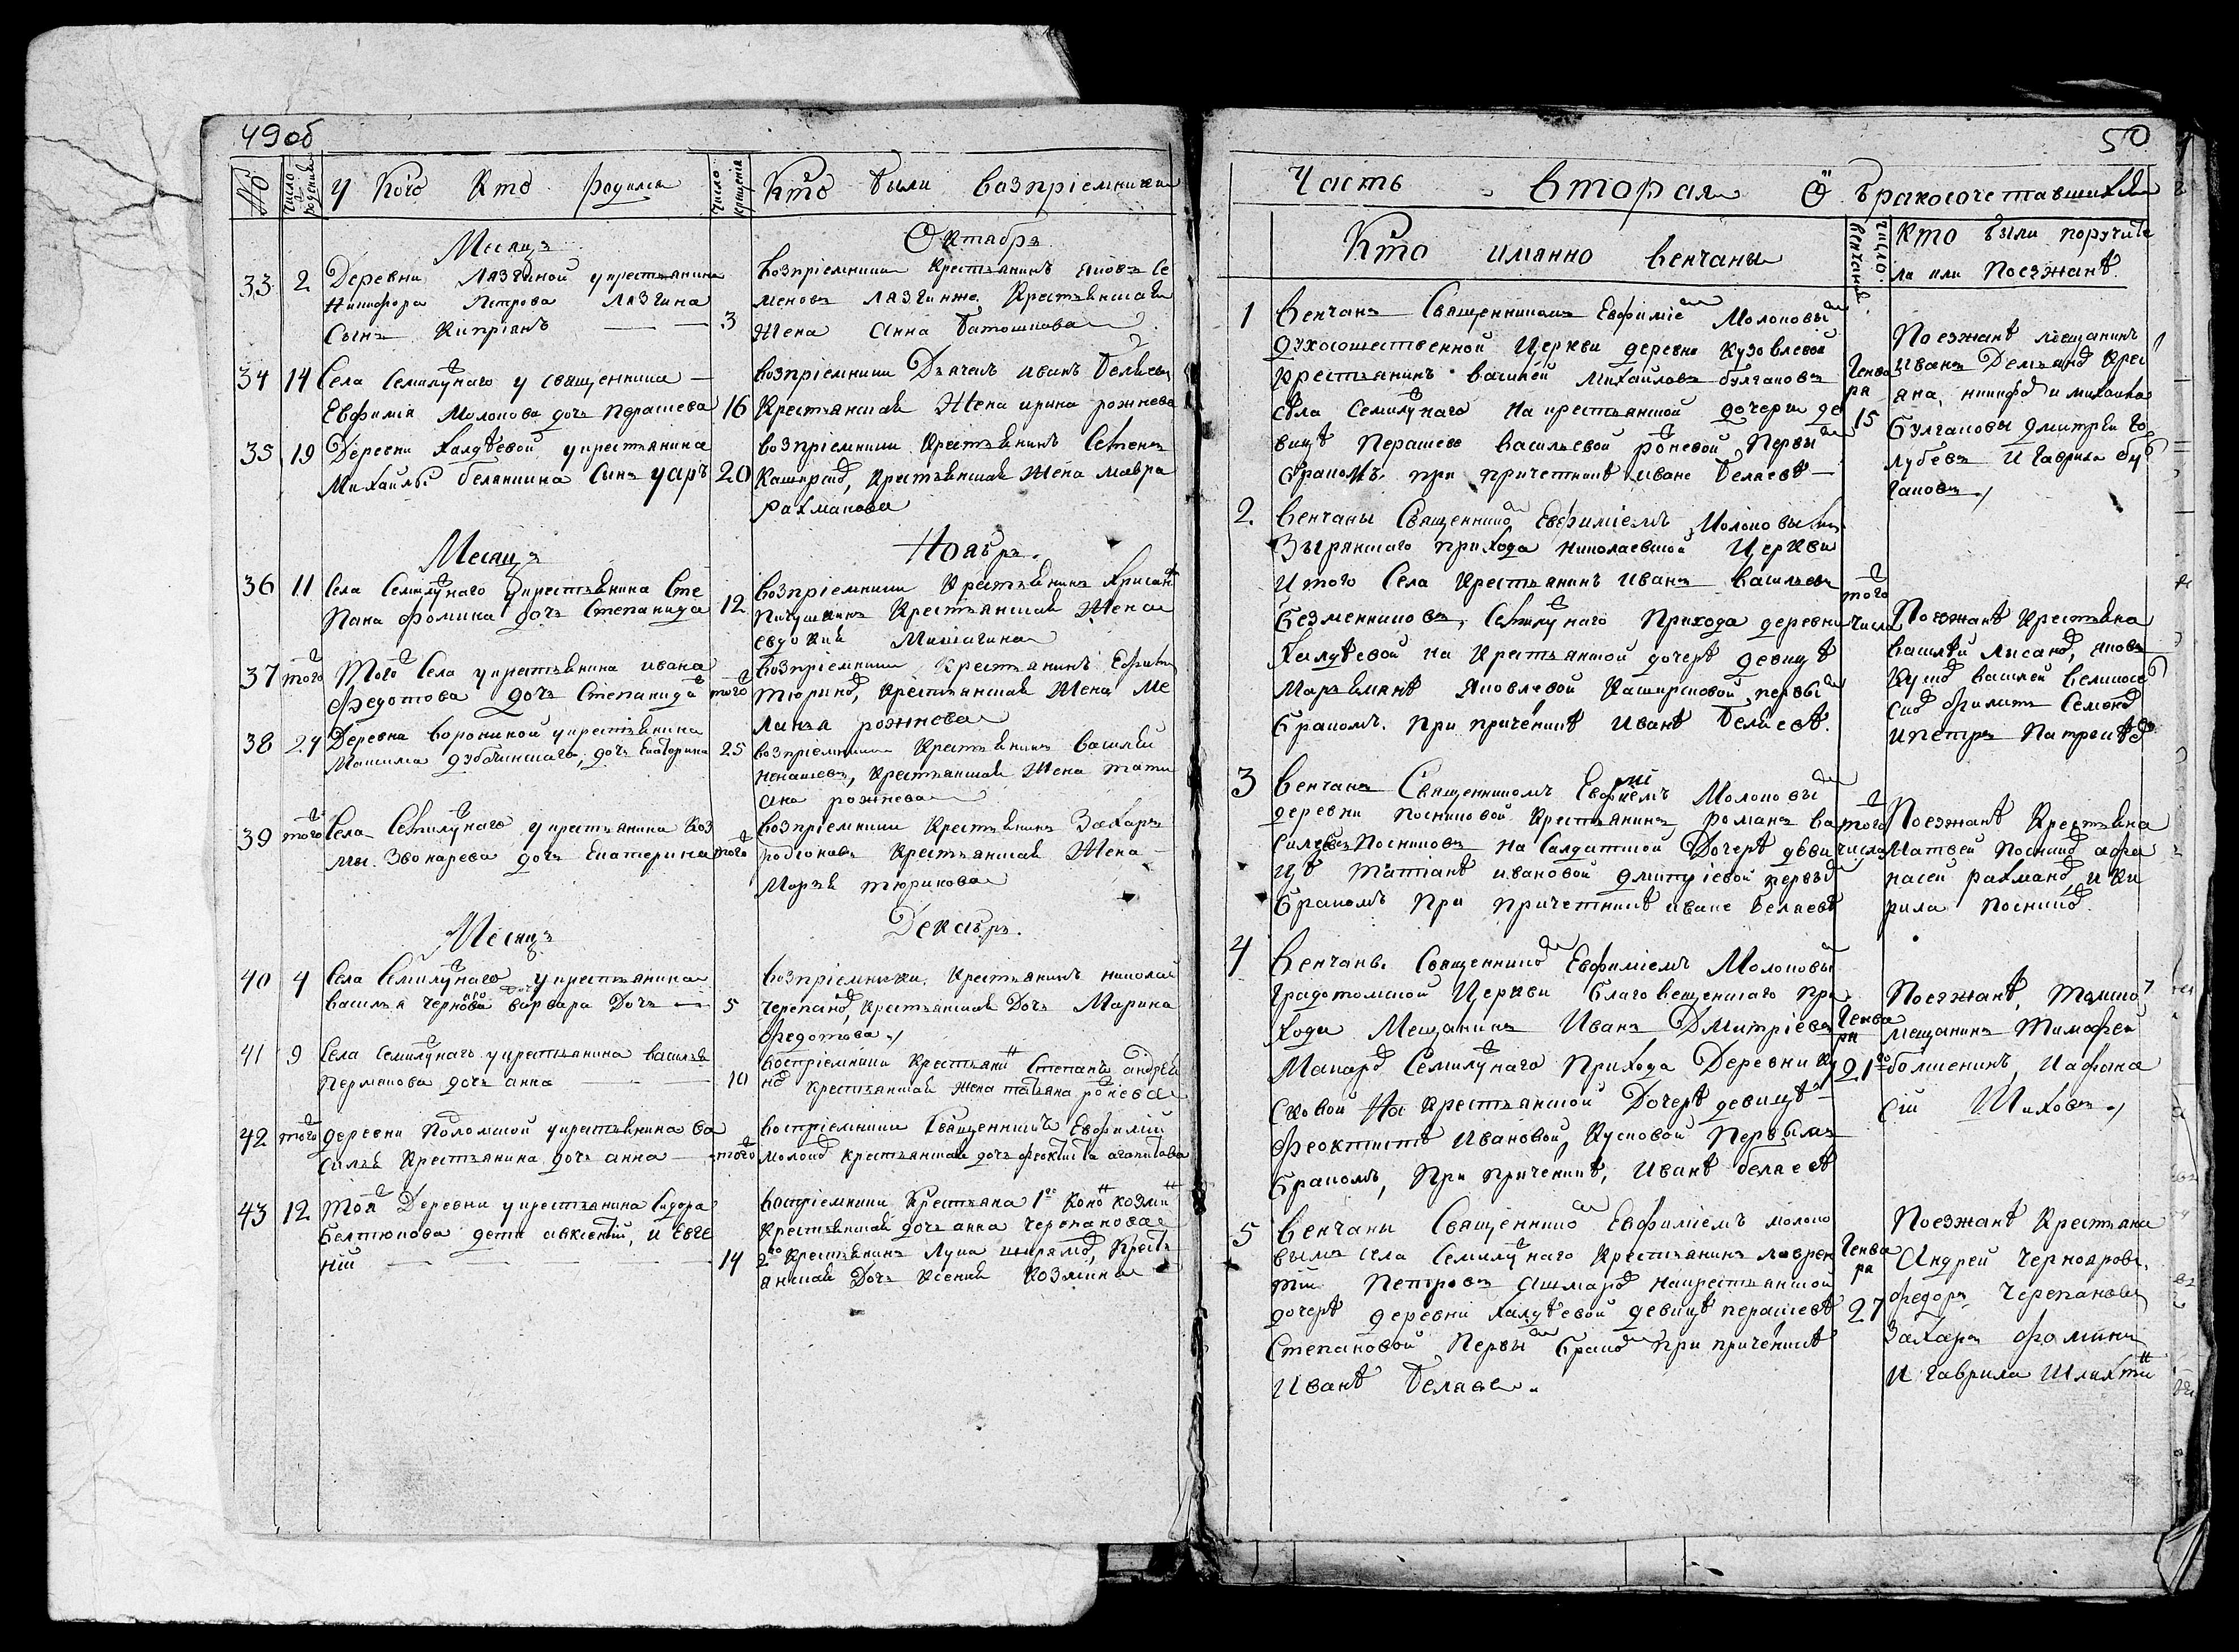 49об
№
число рождения
У кого кто родился
число крещения
Кто были возпріемники
Месяцъ
Октабръ
33
2
Деревни Лязгиной у крестьянина
Никифора Петрова Лязгина
Сынъ Кипріянъ
3
возпріемники крестьянинъ яковъ Се
меновъ Лязгинже, Крестьянская
Жена Анна Батошкова
34
14
Села Семилужнаго у священника
Евфимія Молокова дочь Парашева
16
возпріемники Дьячекъ иванъ Беляевъ
Крестьянская Жена ирина рожнева
35
19
Деревни Халдеевой у крестьянина
Михайлы Белянкина Сынъ уаръ
20
возпріемники крестьянинъ Семенъ
Кашир, крестьянская Жена мавра
рахманова
Месяцъ
Ноябръ.
36
11
Села Семилужнаго у крестьянина Сте
Пана Фомина дочь Степанида
12
возпріемники крестьянинъ Хрисан
Пичугинъ Крестьянская Жена
евдокия Мишагина
37
того
Того Села у крестьянина ивана
Федотова дочь Степанида
того
возпріемники, крестьянинъ Ефим
тюрик, крестьянская Жена Ме
ланья рожнова
38
24
Деревни Ворониной у крестьянина
Максима дубинскаго, дочь Екатерина
25
возпріемники крестьянинъ Василей
ненашевъ, крестьянская Жена тати
яна рожнева
39
того
Села Семилужнаго у крестьянина Коз
мы Звонарева дочь Екатерина
того
возпріемники крестьянинъ Захаръ
родіоновъ крестьянская Жена
Марья тюрикова
Месяцъ
Декабръ.
40
4
Села Семилужнаго у крестьянина
василья черно варвара Дочь
5
возпріемники, крестьянинъ николай
черепан, крестьянская Дочь Марина
Федотова
41
9
Села Семилужнаго у крестьянина василья
Пермякова дочь анна
10
воспріемники крестьяни Степанъ андрея
но крестьянская Жена татьяна ронева
42
того
деревни Поломской у крестьянина ва
силья Крестьянина дочь анна
того
воспріемники Священникъ Евфимій
молок крестьянская дочь Феоктиста агапитова
43
12
Той Деревни у крестьянина Сидора
Белтюкова дети авксентій, и Евге
ній
14
воспріемники Крестьяна 1е Коно козми
крестьянская дочь анна черепанова
2го крестьянинъ Лука, крестъ
янская Дочь Ксения Козмина
50
Часть вторая О бракосочетавшихся
Кто имянно венчаны
число венчания
Кто были поручите
ли или Поезжанѣ
1
Венчанъ Священникомъ Евфиміе Молоковы
духосошественной Церкви деревни Кузовлевой
крестьянинъ василей Михайловъ булгаковъ
села Семилужнаго на крестьянской дочери де
вицѣ Перашеве васильевой роневой Первы
бракомъ. при причетникѣ иване Беляевѣ
Генва
ря
15
Поезжанѣ мещанинъ
иванъ Демьян крес
яна, никиф и михаила
Булгаковы дмитрей го
лубевъ и гаврила бул
гаковъ
2.
Венчаны Священнико Евфиміемъ Молоковымъ
Зырянскаго прихода николаевской Церкви
и того Села крестьянинъ иванъ васильевъ
Безменниковъ, Семилужнаго Прихода деревни
Халдѣевой на крестьянской дочерѣ девицѣ
Марьямнѣ Яковлевой Кашириновой первы
бракомъ. при приченикѣ иванѣ Беляевѣ.
того
числа
Поезжанѣ Крестьяна
василей Лисан, яковъ
Кул василей великосе
с филипъ Семен
и петръ Патрак
3
Венчанъ Священникомъ Евфиміемъ Молоковы
деревни Поскиновой Крестьянинъ романъ Ва
сильевъ Поскиновъ на Салдатской Дочерѣ деви
цѣ Татіянѣ ивановой дмитріевой первы
бракомъ при причетникѣ иване Беляевѣ
того
числа
Поезжанѣ крестьяна
Матвей Поскин афа
насей рахман и Ки
рила Поскин
4
Венчанъ Священнико Евфиміемъ Молоковы
градотомской Церкви благовещенскаго при
хода Мещанинъ Иванъ Дмитріевъ
Макар Семилужнаго прихода Деревни Ку
сковой На крестьянской Дочерѣ девицѣ
Феоктистѣ Ивановой, Кусковой Первымъ
бракомъ, При приченикѣ, иванѣ беляевѣ
Генва
ря
21го
Поезжанѣ, томско
мещанинъ Тимофей
болшенинъ, и афана
сій Шиховъ
5
Венчаны Священнико Евфиміемъ молоко
вымъ села Семилужнаго крестьянинъ лаврен
тій Петровъ Ашмар на крестьянской
дочерѣ деревни Халдѣевой девицѣ перашевѣ
Степановой Первы брако при приченикѣ
Иванѣ Беляве.
Генва
ря
27
Поезжанѣ Крестьяна
Андрей Чернояровъ,
федоръ Черепановъ
Захаръ Фоминъ
и гаврила Шляхти